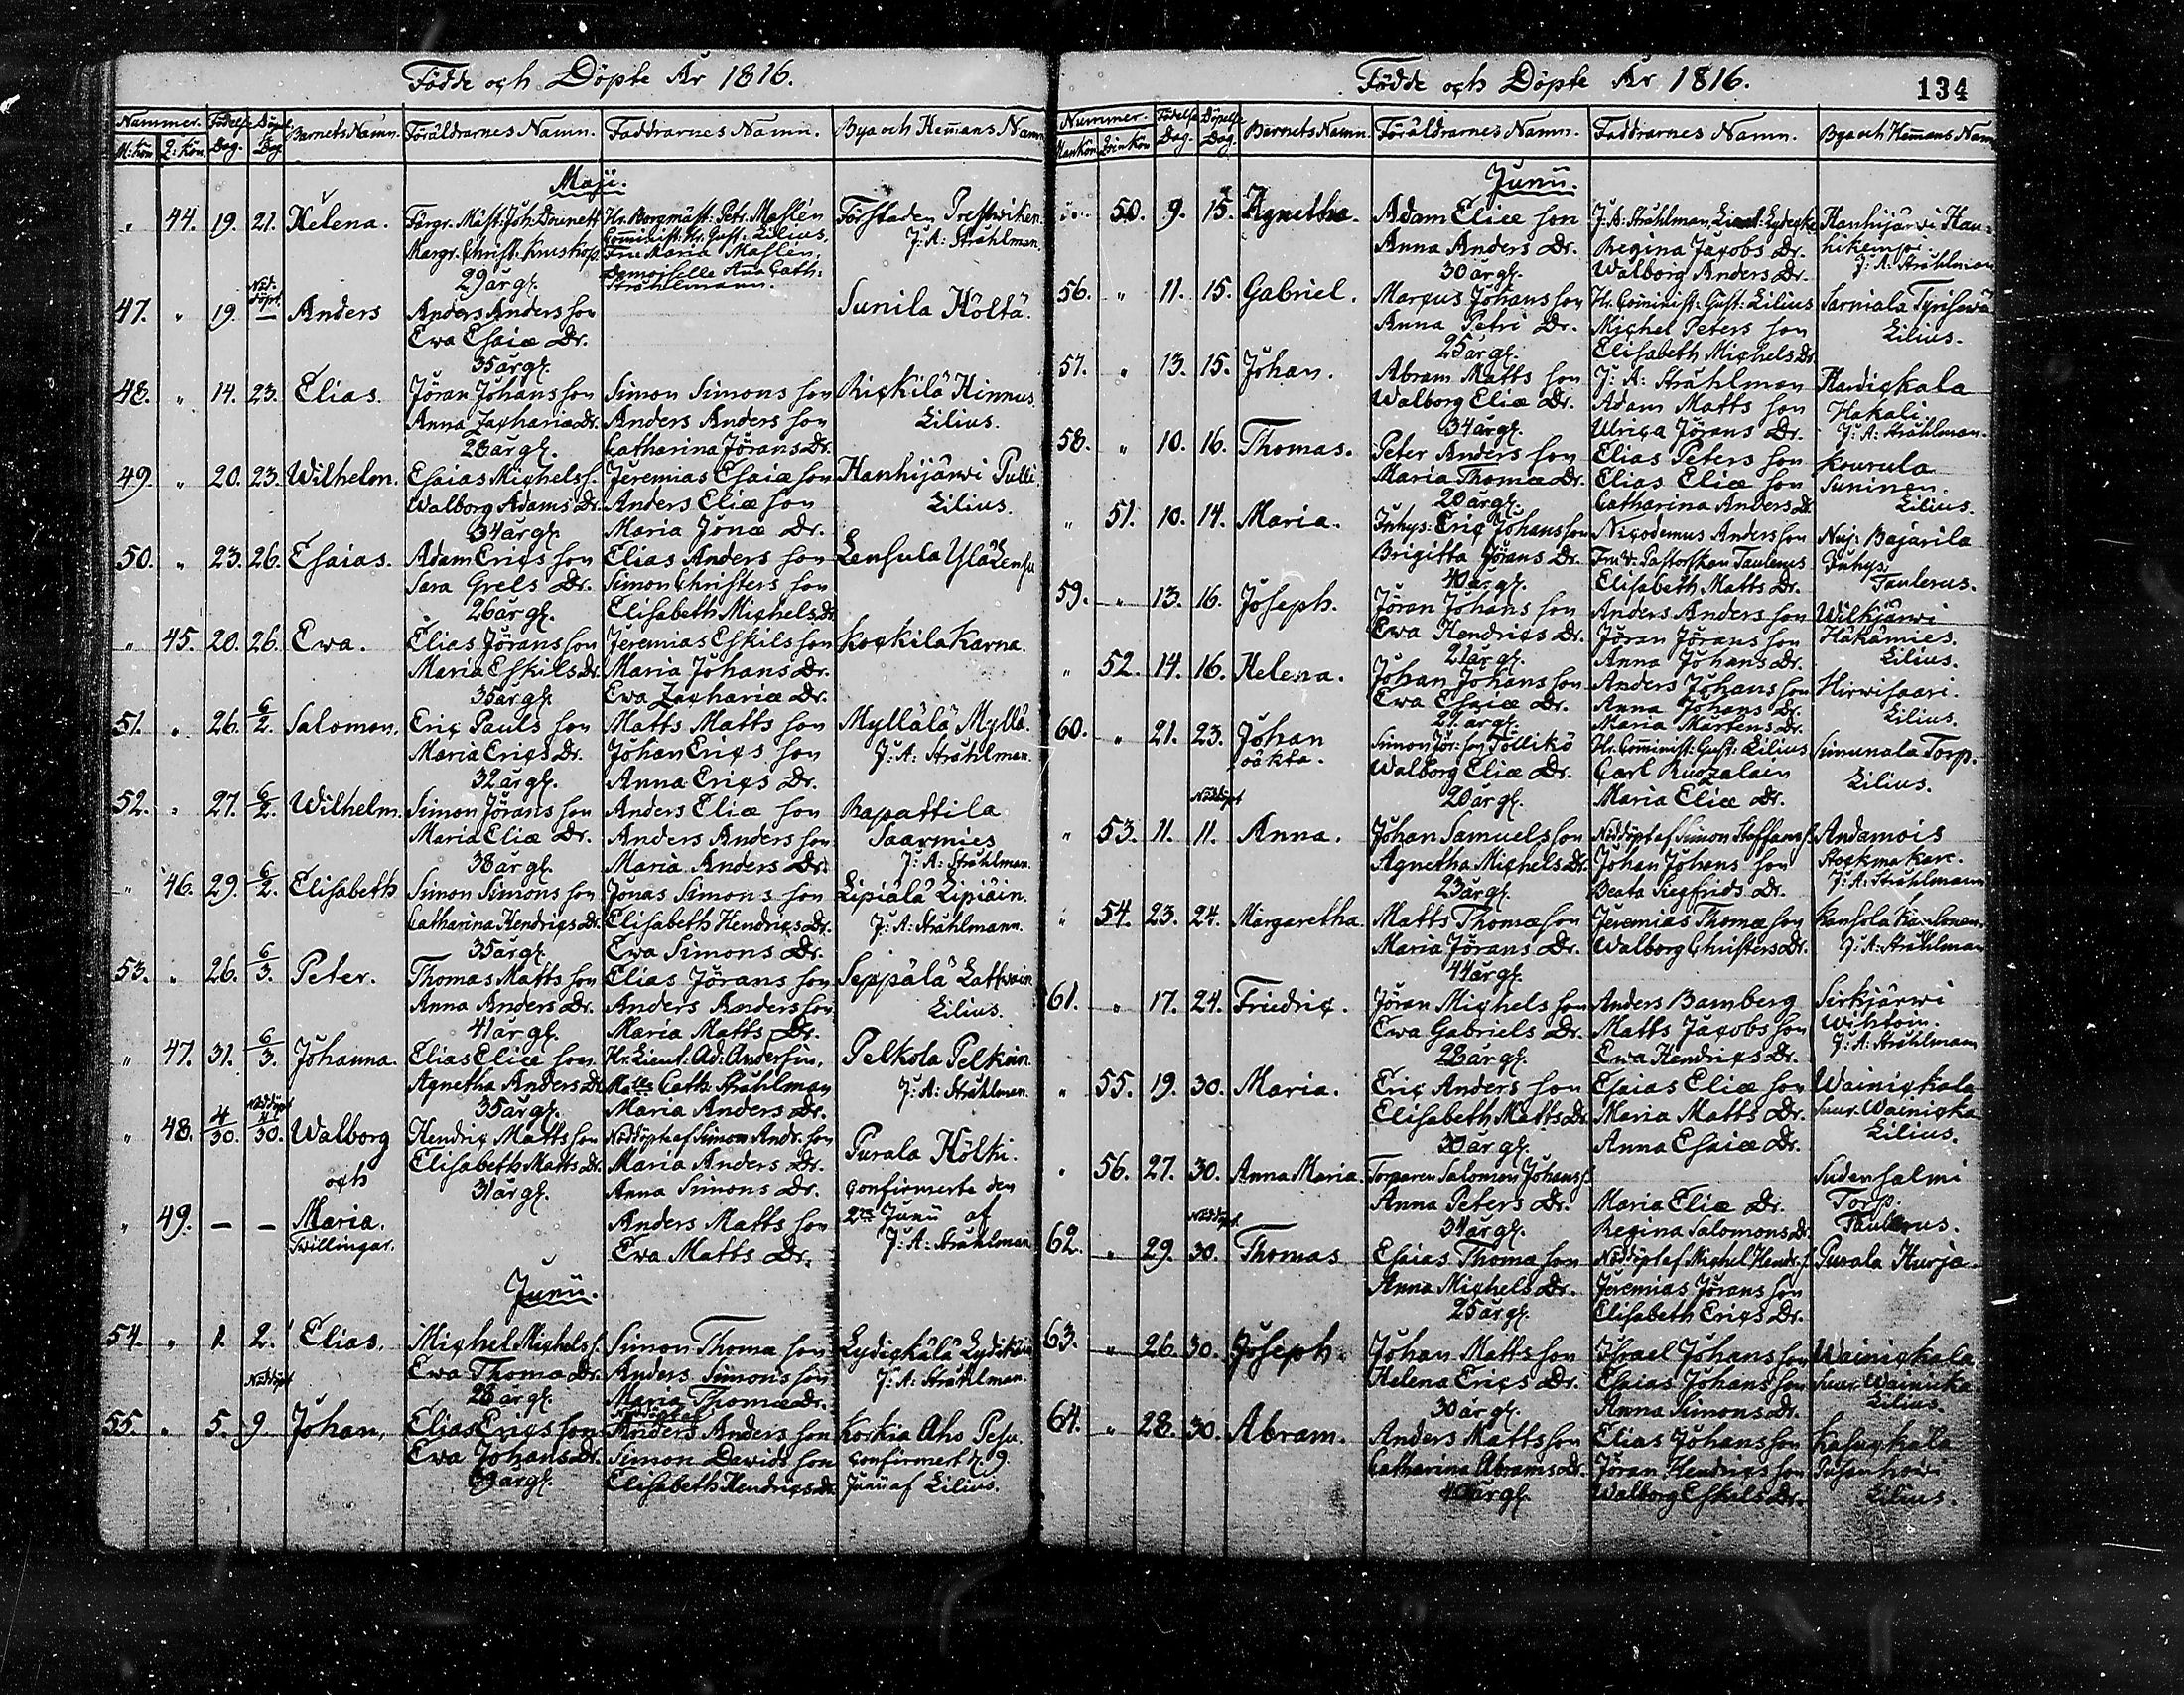 Födde och Döpte År 1816.
Nummer. Födelse Döpelse
M: Kön Q: Kön. Dag. Dag Barnets Namn. Föräldrarnes Namn. Faddrarnes Namn. Bya och Hemans Namn
Maji.
" 44. 19. 21. Helena. Färgr. Mäst: Joh. Hr. Borgmäst: Petr. Maslén Förstaden
Margr. Christ. Kruskop. Cominist: Hr. Gust: Lilius, J: A: Stråhlman.
29 år gl. Fru Maria Maslén;
Demoiselle Ana Cath:
Stråhlmann.
Nöd-
döpt.
47. " 19. — Anders Anders Anders son Sunila Höltä.
Ewa Esaiæ Dr.
35 år gl.
48. " 14. 23. Elias. Jöran Johans son Simon Simons son Rickilä Hinnus.
Anna Zachariæ Dr. Anders Anders son Lilius.
28 år gl. Catharina Jörans Dr.
49. " 20. 23. Wilhelm. Esaias Michels s. Jeremias Esaiæ son Hanhijärwi Pulli
Walborg Adams Dr. Anders Eliæ son Lilius.
34 år gl. Maria Jonæ Dr.
50. " 23. 26. Esaias. Adam Erics son Elias Anders son Lensula Ylä Lensu
Sara Grels Dr. Simon Christers son
26 år gl. Elisabeth Michels Dr
" 45. 20. 26. Ewa. Elias Jörans son Jeremias Eskils son Kockila Karna.
Maria Eskils Dr. Maria Johans Dr.
35 år gl. Ewa Zachariæ Dr.
51. " 26. 6/2. Salomon. Eric Pauls son Matts Matts son Myllälä Myllä.
Maria Erics Dr. Johan Erics son J: A: Stråhlman.
32 år gl. Anna Erics Dr.
52. " 27. 6/2. Wilhelm. Simon Jörans son Anders Eliæ son Rapattila
Maria Eliæ Dr. Anders Anders son Saarmies
38 år gl. Maria Anders Dr. J: A: Stråhlman
" 46. 29. 6/2. Elisabeth Simon Simons son Jonas Simons son Lipiälä Lipiäin.
Catharina Hendrics Dr. Elisabeth Hendrics Dr. J: A: Stråhlmann.
35 år gl. Ewa Simons Dr.
53. " 26. 6/3. Peter. Thomas Matts son Elias Jörans son Seppälä Lattwain
Anna Anders Dr. Anders Anders son Lilius.
41 år gl. Maria Matts Dr.
" 47. 31. 6/3. Johanna. Elias Eliæ son Hr. Lieut: Ad: Andersin, Pelkola Pelkiin.
Agnetha Anders Dr Malle Cath: Stråhlman J: A: Stråhlman.
35 år gl. Maria Anders Dr.
Nöddöpt
" 48. 4/30. 4/30. Walborg Hendric Matts son Nöddöpt af Simon Andr. son Purala Hölki.
och Elisabeth Matts Dr. Maria Anders Dr.
31 år gl. Anna Simons Dr. confirmerte den
" 49. — — Maria. Anders Matts son 2dra Junii af
Twillingar. Ewa Matts Dr. J: A: Stråhlman
Junii.
54. " 1. 2. Elias. Michel Michels s. Simon Thomæ son Lydickälä
Ewa Thomæ Dr. Anders Simons son J: A: Stråhlman.
28 år gl. Maria Thomæ Dr.
Nöddöpt
55. " 5. 9. Johan. Elias Erics son Nöddöpt af Anders Anders son Korkia Aho Pesu.
Ewa Johans Dr. Simon Davids son confirmert d. 9.
39 år gl. Elisabeth Hendrics Dr. Junii af Lilius.
Födde och Döpte År 1816. 134
Nummer. Födelse Döpelse
Man Kön Qvin Kön Dag. Dag. Barnets Namn. Föräldrarnes Namn. Faddrarnes Namn. Bya och Hemans Nam
Junii.
50. 9. 15. Agnetha. Adam Eliæ son J: A: Stråhlman, Lieut: Lydecke Hanhijärwi Han-
Anna Anders Dr. Regina Jacobs Dr. hikempi.
30 år gl. Walborg Anders Dr. J: A: Stråhlman
56. " 11. 15. Gabriel. Marcus Johans son Hr. Cominist: Gust: Lilius Sarviala
Anna Petri Dr. Michel Peters son Lilius.
25 år gl. Elisabeth Michels Dr
57. " 13. 15. Johan. Abram Matts son J: A: Stråhlman Hardickala
Walborg Eliæ Dr. Adam Matts son Hakali.
34 år gl. Ulrica Jörans Dr. J: A: Stråhlman.
58. " 10. 16. Thomas. Peter Anders son Elias Peters son Kourula
Maria Thomæ Dr. Elias Eliæ son Suninen.
20 år gl. Catharina Anders Dr Lilius.
" 51. 10. 14. Maria. Inhys: Eric Johans son Nicodemus Anders son Nuj: Bajarila
Brigitta Jörans Dr. Fru V: Pastorskan Taulerus Inhys.
40 år gl. Elisabeth Matts Dr. Taulerus.
59. " 13. 16. Joseph. Jöran Johans son Anders Anders son Wilkjärwi
Ewa Hendrics Dr. Jöran Jörans son Häkämies.
21 år gl. Anna Johans Dr. Lilius.
" 52. 14. 16. Helena. Johan Johans son Anders Johans son Hirwisaari.
Ewa Esaiæ Dr. Anna Johans Dr. Lilius.
27 år gl. Maria Mårtens Dr.
60. " 21. 23. Johan Simon Jör: son Pöllikö Hr. Cominist: Gust: Lilius Simunala Torp.
oäkta. Walborg Eliæ Dr. Carl Ruozalain Lilius.
20 år gl. Maria Eliæ Dr.
Nöddöpt
" 53. 11. 11. Anna. Johan Samuels son Nöddöpt af Simon Staffans s. Andamois
Agnetha Michels Dr. Johan Johans son Stockmakare.
23 år gl. Beata Siegfrids Dr. J: A: Stråhlmann
" 54. 23. 24. Margaretha. Matts Thomæ son Jeremias Thomæ son Kansola Kanhonen.
Maria Jörans Dr. Walborg Christers Dr. J: A: Stråhlman
44 år gl.
61. " 17. 24. Friedric. Jöran Michels son Anders Bamberg Sirkjärwi
Ewa Gabriels Dr. Matts Jacobs son Wihtoin.
28 år gl. Ewa Hendrics Dr. J: A: Stråhlmann
" 55. 19. 30. Maria. Eric Anders son Esaias Eliæ son Wainickala
Elisabeth Matts Dr. Maria Matts Dr. Suur Wainicka
30 år gl. Anna Esaiæ Dr. Lilius.
" 56. 27. 30. Anna Maria. Torparen Salomon Johans s. Sudensalmi
Anna Peters Dr. Maria Eliæ Dr. Torp.
34 år gl. Regina Salomons Dr. Taulerus.
Nöddöpt.
62. " 29. 30. Thomas Esaias Thomæ son Nöddöpt af Michel Hendr. s. Purala Hurja.
Anna Michels Dr. Jeremias Jörans son
25 år gl. Elisabeth Erics Dr.
63. " 26. 30. Joseph. Johan Matts son Israel Johans son Wainickala
Helena Erics Dr. Esaias Johans son Suur Wainicka
30 år gl. Anna Simons Dr. Lilius.
64. " 28. 30. Abram. Anders Matts son Elias Johans son Kasuckala
Catharina Abrams Dr. Jöran Hendrics son
40 år gl. Walborg Eskils Dr. Lilius.